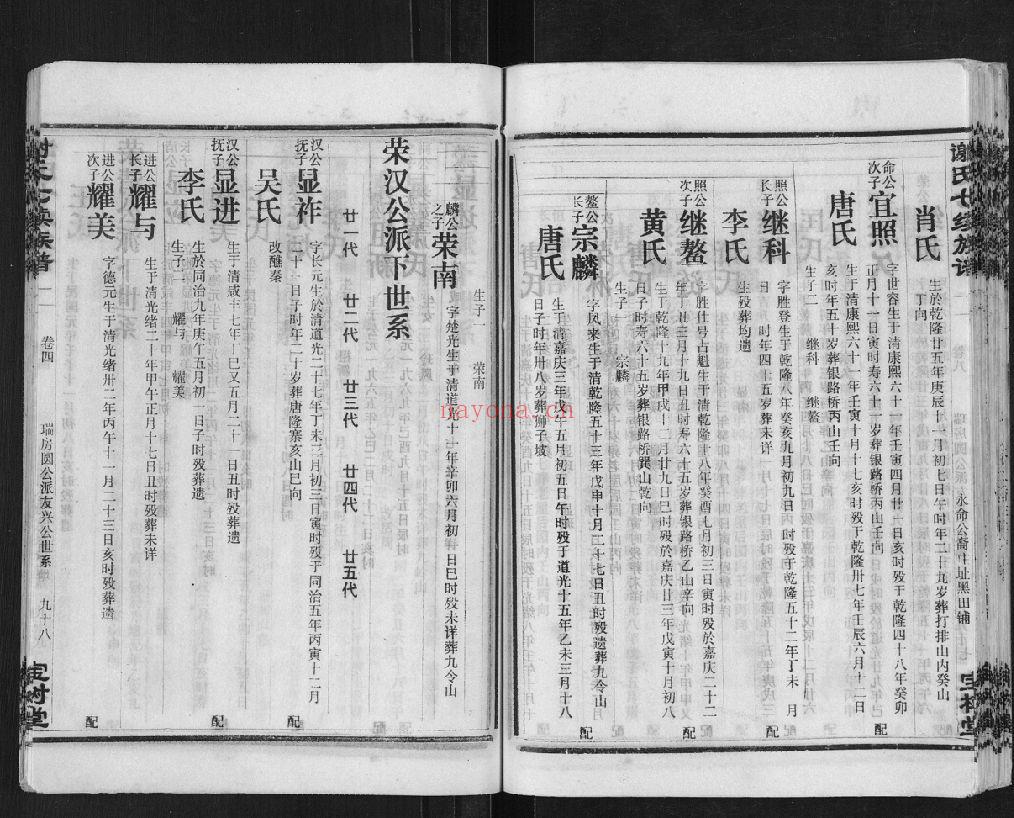 谢氏七续族谱
永命公裔住址黑田铺
宝树堂
肖氏
生於乾隆廿五年庚辰十一月初七日午时年二十九岁葬打排山内癸山
丁向
命公
次子
宜照
字世容生于清康熙六十一年壬寅四月廿一日亥时殁于乾隆四十八年癸卯
正月十一日寅时寿六十一岁葬银路桥丙山壬向
配
唐氏
生于清康熙六十一年壬寅十月十七亥时殁于乾隆卅七年壬辰六月十二日
亥时年五十岁葬银路桥丙山壬向
生子二 继科 继鳌
照公
长子
继科
字胜登生于乾隆八年癸亥九月初九日 时殁于乾隆五十二年丁未 月
日 时年四十五岁葬未详
配
李氏
生殁葬均遗
照公
次子
继鳌
字胜仕号占魁生于清乾隆十八年癸酉七月初三日寅时殁於嘉庆二十二
年丁丑三月十九日丑时寿六十五岁葬银路桥乙山辛向
配
黄氏
生于乾隆十九年甲戌十二月廿九日巳时殁於嘉庆廿三年戊寅十月初八
日子时寿六十五岁葬银路桥巽山乾向
生子一 宗麟
鳌公
长子
宗麟
字凤来生于清乾隆五十三年戊申十月二十七日丑时殁遗葬九令山
配
唐氏
生于清嘉庆三年戊午五月初五日午时殁于道光十五年乙未三月十八
日子时年卅八岁葬狮子坡
生子一 荣南
麟公
之子
荣南
字楚光生于清道光十一年辛卯六月初一日巳时殁未详葬九令山
荣汉公派下世系
廿一代 廿二代 廿三代 廿四代 廿五代
汉公
抚子
显祚
字长元生於清道光二十七年丁未二月初三日寅时殁于同治五年丙寅十二月
二十一日子时年二十岁葬唐隆寨亥山巳向
配
吴氏
改醮秦
汉公
抚子
显进
生于清咸丰七年丁巳又五月二十一日丑时殁葬遗
配
李氏
生於同治九年庚午五月初一日子时殁葬遗
生子二 耀与 耀美
进公
长子
耀与
生于清光绪二十年甲午正月十七日丑时殁葬未详
进公
次子
耀美
字德元生于清光绪卅二年丙午十一月二十三日亥时殁葬遗
配
卷四
瑞房圆公派友兴公世系
九十八
宝树堂
nayona.cn